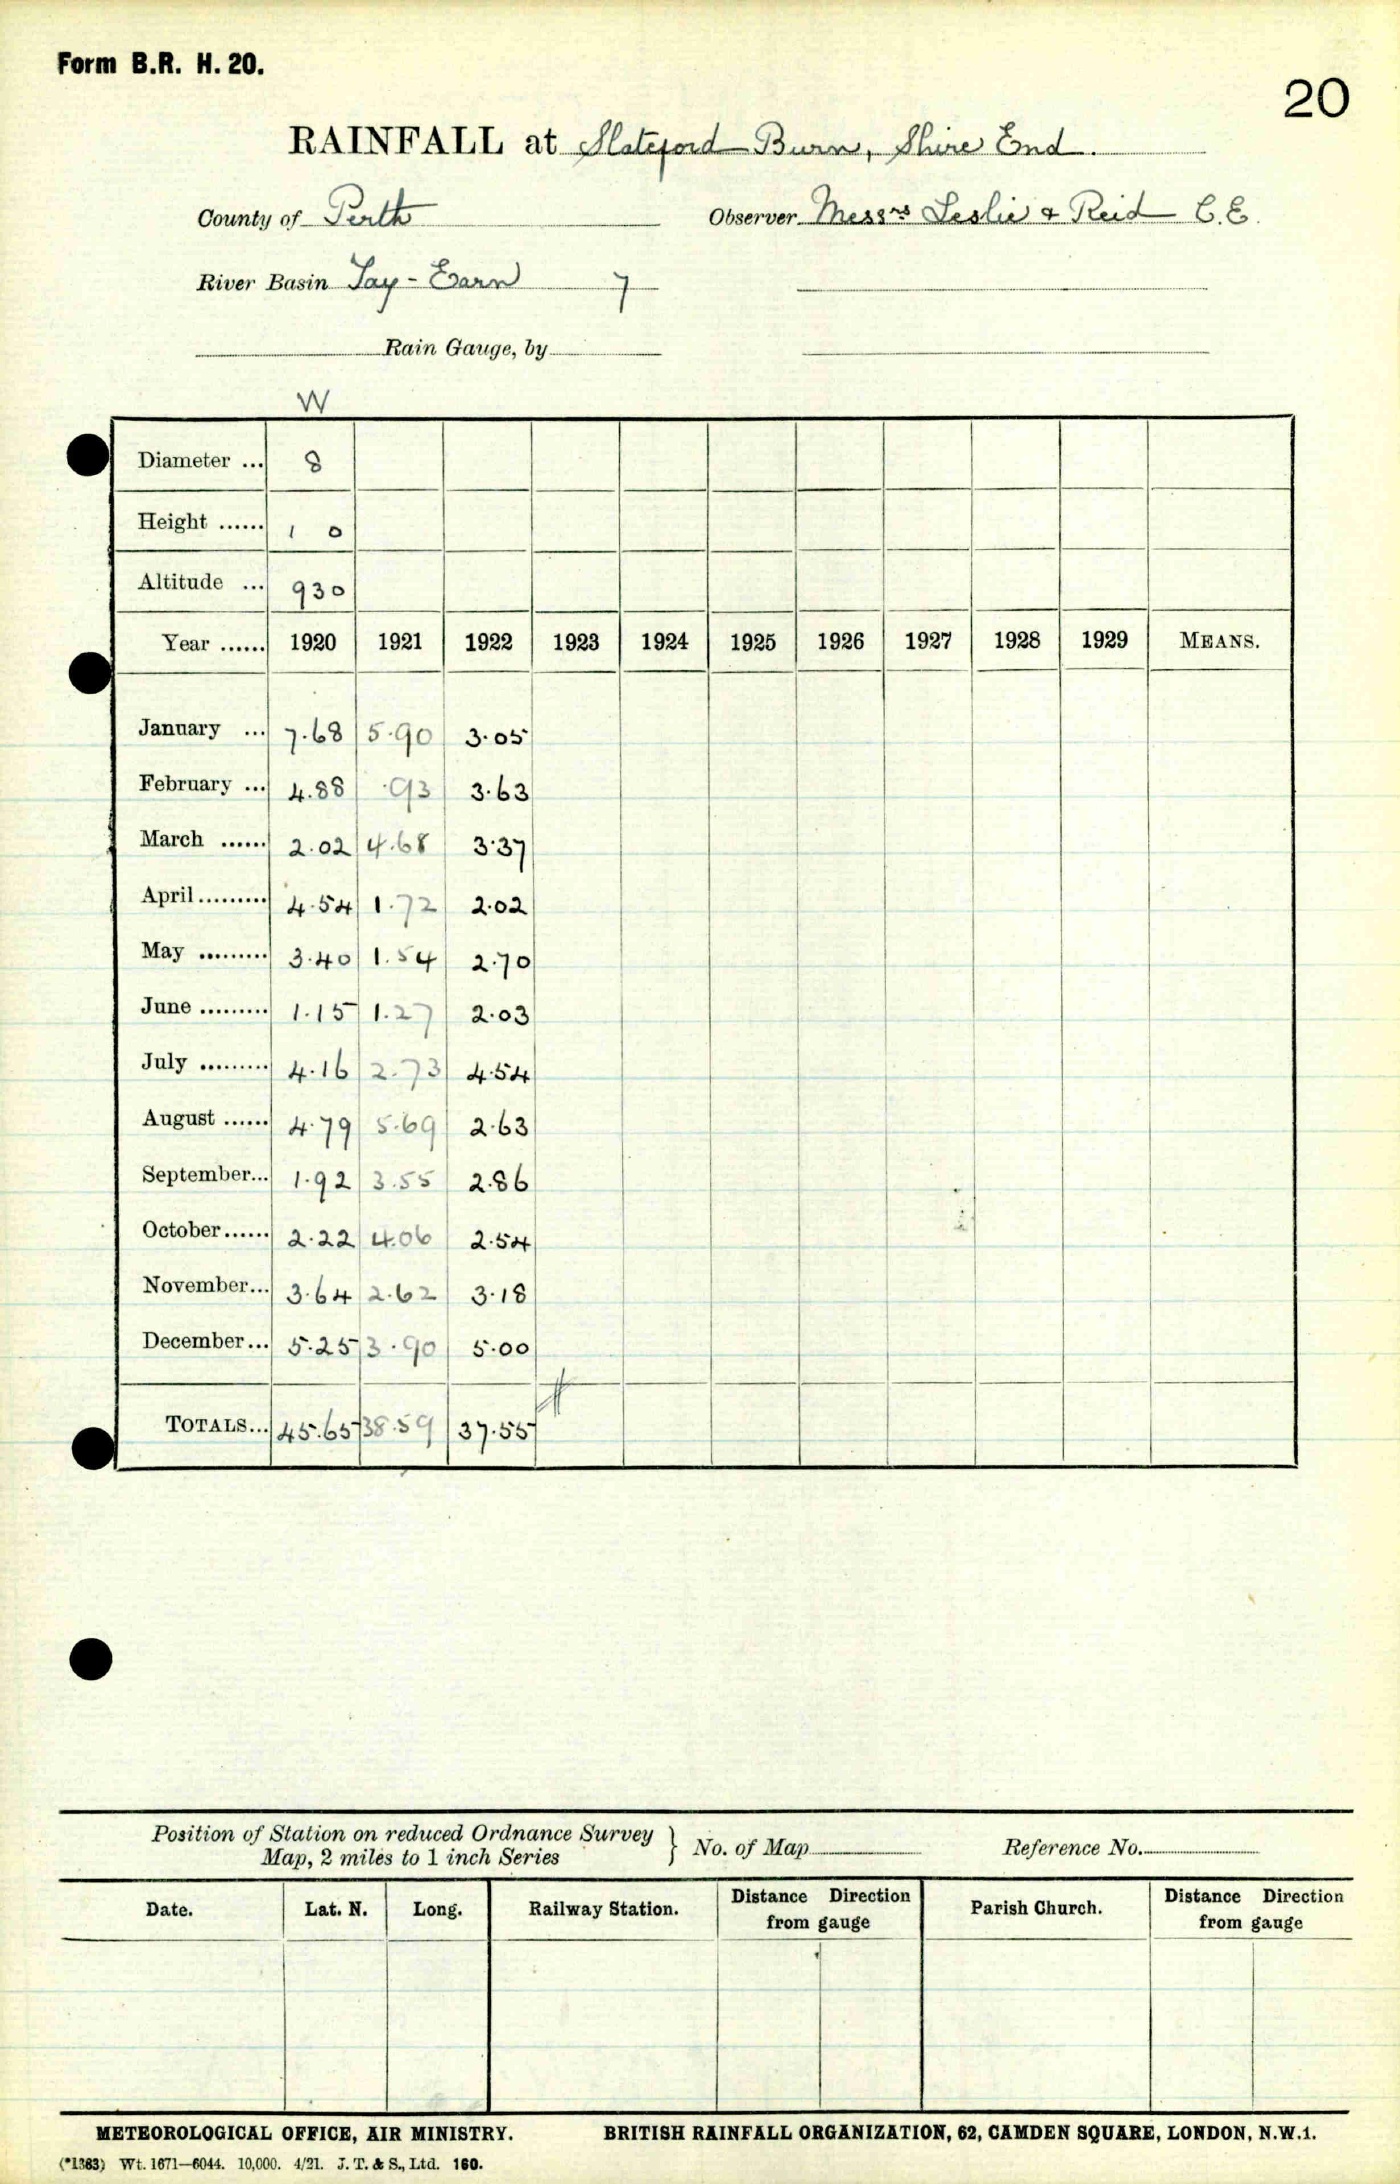 Form B.R. H. 20.
20
RAINFALL at Slateford Burn, Shire End.
County of Perth Observer Messrs Leslie & Reid C.E.
River Basin Tay - Earn 7
Rain Gauge, by
W
Diameter ... 8
Height ...... 1 0
Altitude ... 930
Year ...... 1920 1921 1922 1923 1924 1925 1926 1927 1928 1929 MEANS.
January ... 7.68 5.90 3.05
February ... 4.88 .93 3.63
March ...... 2.02 4.68 3.37
April ......... 4.54 1.72 2.02
May ......... 3.40 1.54 2.70
June ......... 1.15 1.27 2.03
July ......... 4.16 2.73 4.54
August ...... 4.79 5.69 2.63
September... 1.92 3.55 2.86
October...... 2.22 4.06 2.54
November... 3.64 2.62 3.18
December... 5.25 3.90 5.00
TOTALS... 45.65 38.59 37.55
Position of Station on reduced Ordnance Survey
Map, 2 miles to 1 inch Series } No. of Map Reference No.
Date. Lat. N. Long. Railway Station. Distance Direction from gauge Parish Church. Distance Direction from gauge
METEOROLOGICAL OFFICE, AIR MINISTRY. BRITISH RAINFALL ORGANIZATION, 62, CAMDEN SQUARE, LONDON, N.W.1.
(*1363) Wt. 1671—6044. 10,000. 4/21. J. T. & S., Ltd. 160.